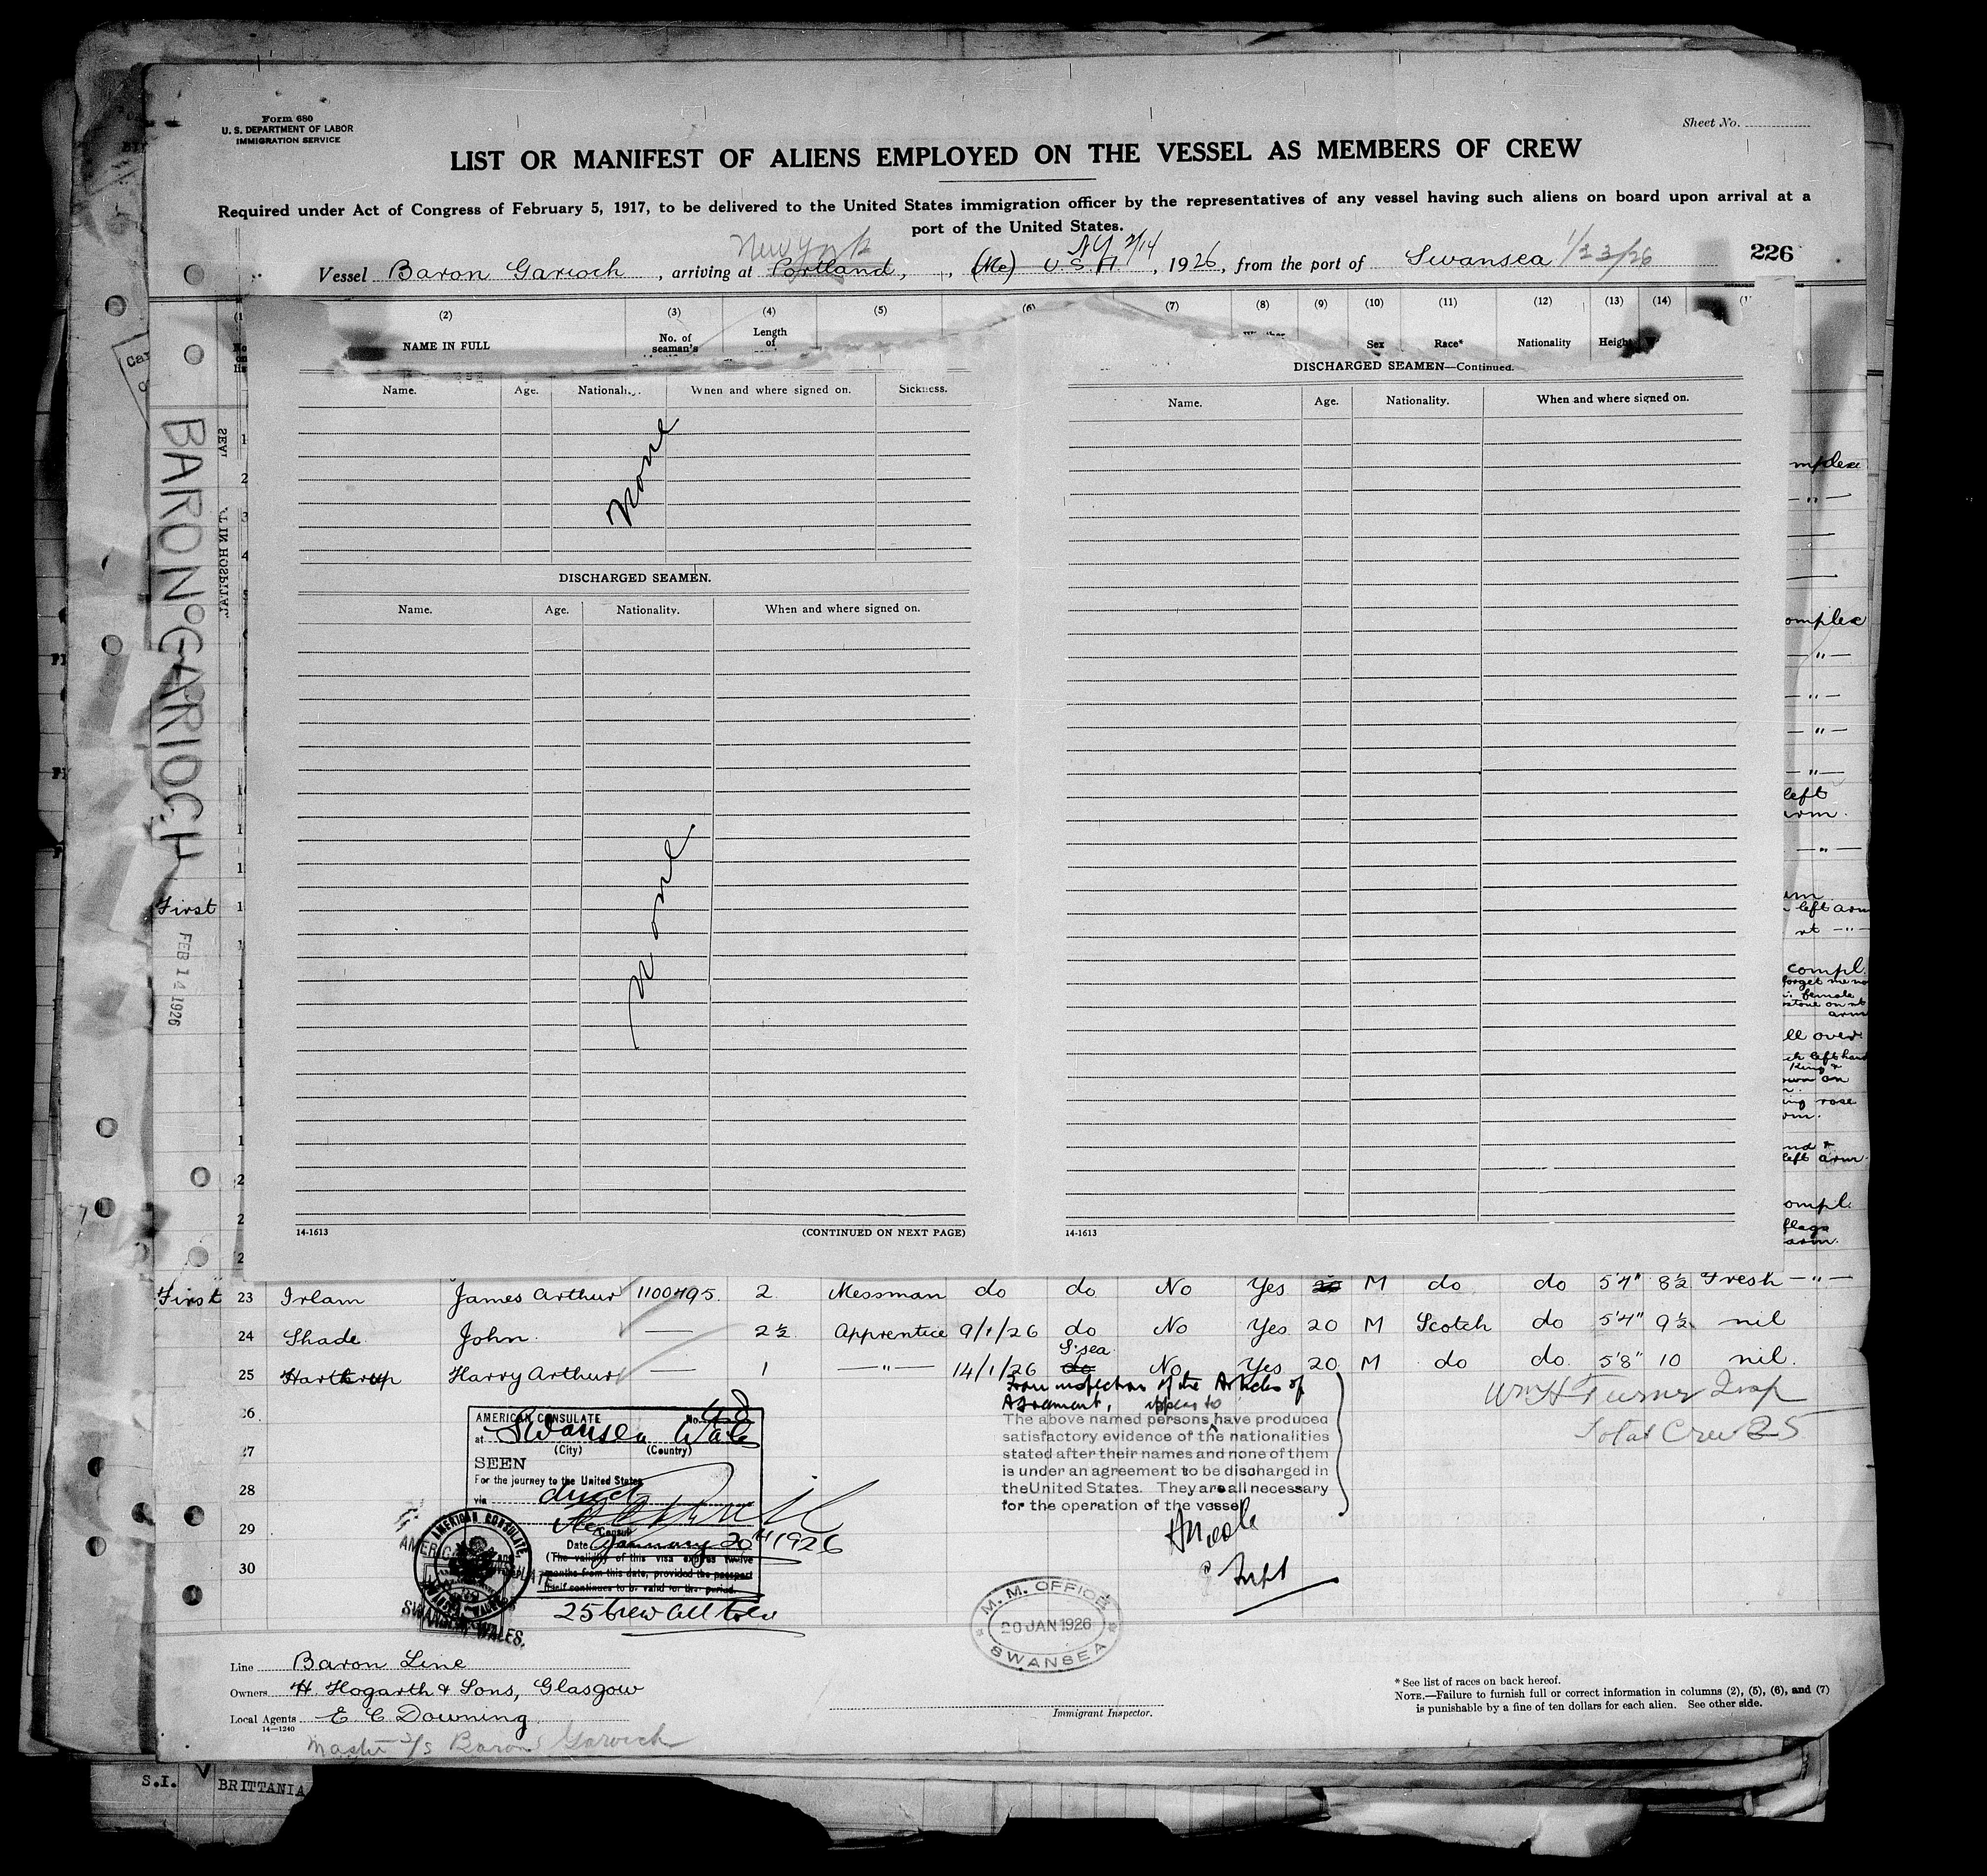 Form 680
U. S. DEPARTMENT OF LABOR
IMMIGRATION SERVICE
Sheet No.
LIST OR MANIFEST OF ALIENS EMPLOYED ON THE VESSEL AS MEMBERS OF CREW
Required under Act of Congress of February 5, 1917, to be delivered to the United States immigration officer by the representatives of any vessel having such aliens on board upon arrival at a
port of the United States.
New York NY 2/14
Vessel Baron Garioch, arriving at Portland, (Me) U.S.A, 1926, from the port of Swansea 1/23/26
226
(2) (3) (4) (5) (6) (7) (8) (9) (10) (11) (12) (13) (14)
NAME IN FULL No. of seaman's Length of Sex Race* Nationality Height
Name. Age. When and where signed on. Sickness.
None
DISCHARGED SEAMEN.
Name. Age. Nationality. When and where signed on.
None
14-1613 (CONTINUED ON NEXT PAGE)
DISCHARGED SEAMEN—Continued.
Name. Age. Nationality. When and where signed on.
14-1613
BARON GARIOCH
First
FEB 14 1926
First 23 Irlam James Arthur 1100795 2 Messman do do No Yes M do do 5'4" 8½ Fresh —"—
24 Shade John. — 2½ Apprentice 9/1/26 do No Yes 20 M Scotch do 5'4" 9½ nil
25 Hartrup Harry Arthur — 1 —"— 14/1/26 do S'sea No Yes 20 M do do 5'8" 10 nil.
26
27
28
29
30
From inspection of the Articles of
Agreement, appear to
The above named persons have produced
satisfactory evidence of the nationalities
stated after their names and none of them
is under an agreement to be discharged in
the United States. They are all necessary
for the operation of the vessel
Supt
Wm H Turner Insp
Total Crew 25
AMERICAN CONSULATE No.
at Swansea Wales
(City) (Country)
SEEN
For the journey to the United States
via direct
Consul
Date January 20th 1926
(The validity of this visa expires twelve
months from this date, provided the passport
itself continues to be valid for the period.
25 crew all told
AMERICAN CONSULATE,
SWANSEA, WALES.
M. M. OFFICE
20 JAN 1926
SWANSEA
Line Baron Line
Owners H. Hogarth & Sons, Glasgow
Local Agents E C Downing
14—1240
Master S/S Baron Garioch
Immigrant Inspector.
* See list of races on back hereof.
NOTE.—Failure to furnish full or correct information in columns (2), (5), (6), and (7)
is punishable by a fine of ten dollars for each alien. See other side.
S.I. BRITTANIA